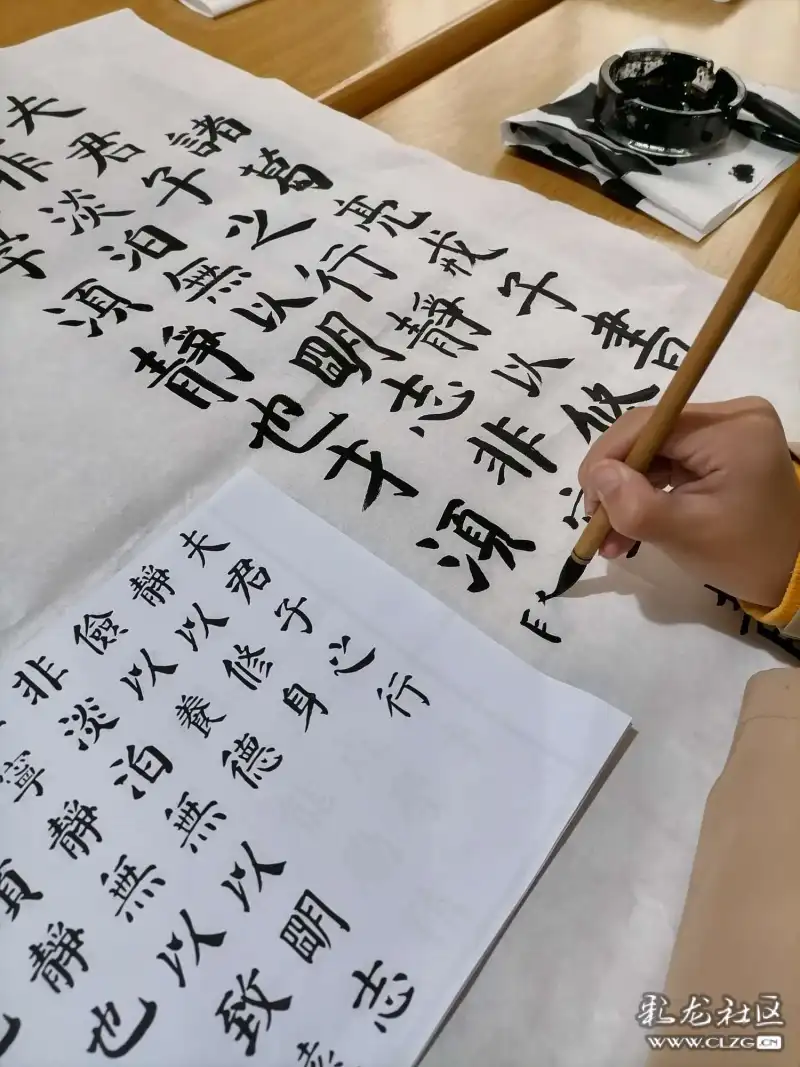 諸葛亮戒子書
夫君子之行靜以修
非淡泊無以明志非
學須靜也才須
夫君子之行
靜以修身
儉以養德
非淡泊無以明志
寧靜無以致
須靜也
彩龙社区
WWW.CLZG.CN